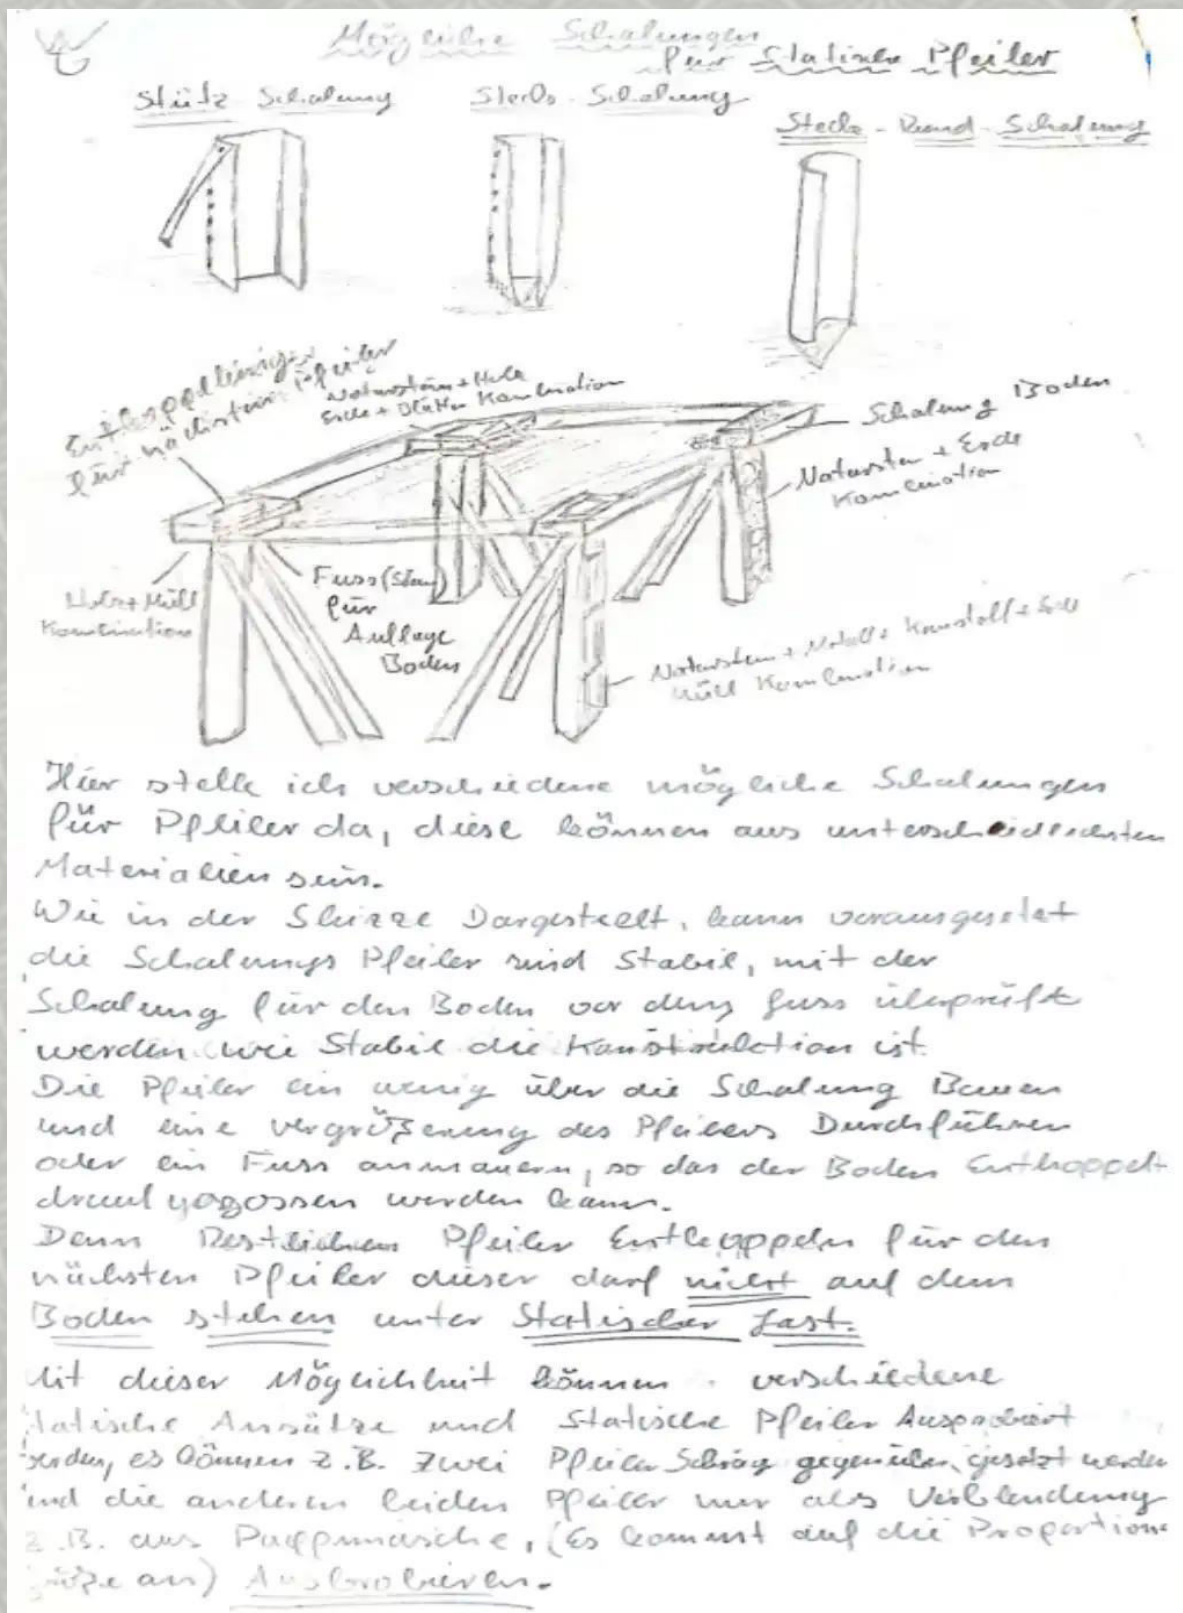 Mögliche Schalungen
für Statische Pfeiler
Stütz Schalung
Steck-Schalung
Steck-Rund-Schalung
Entkoppelung
für nächsten Pfeiler
Naturstein + Holz
Erde + Blätter Kombination
Schalung Boden
Naturstein + Erde
Kombination
Holz + Müll
Kombination
Fuss (Stein)
für
Auflage
Boden
Naturstein + Metall + Kunstoff + Erde
Müll Kombination
Hier stelle ich verschiedene mögliche Schalungen
für Pfeiler da, diese können aus unterschiedlichsten
Materialien sein.
Wie in der Skizze Dargestellt, kann vorausgesetzt
die Schalungs Pfeiler sind Stabil, mit der
Schalung für den Boden vor dem fuss überprüft
werden wie Stabil die Konstruktion ist.
Die Pfeiler ein wenig über die Schalung Bauen
und eine vergrößerung des Pfeilers Durchführen
oder ein Fuss anmauern, so das der Boden Entkoppelt
drauf gegossen werden kann.
Denn Restlichen Pfeiler Entkoppeln für den
nächsten Pfeiler dieser darf nicht auf dem
Boden stehen unter Statischer Last.
Mit dieser Möglichkeit können verschiedene
tatische Ansätze und Statische Pfeiler Ausprobiert
werden, es können z.B. zwei Pfeiler Schräg gegenüber gesetzt werden
und die anderen beiden Pfeiler nur als Verblendung
z.B. aus Pappmasche, (Es kommt auf die Proportions
größe an) Ausbrobieren.